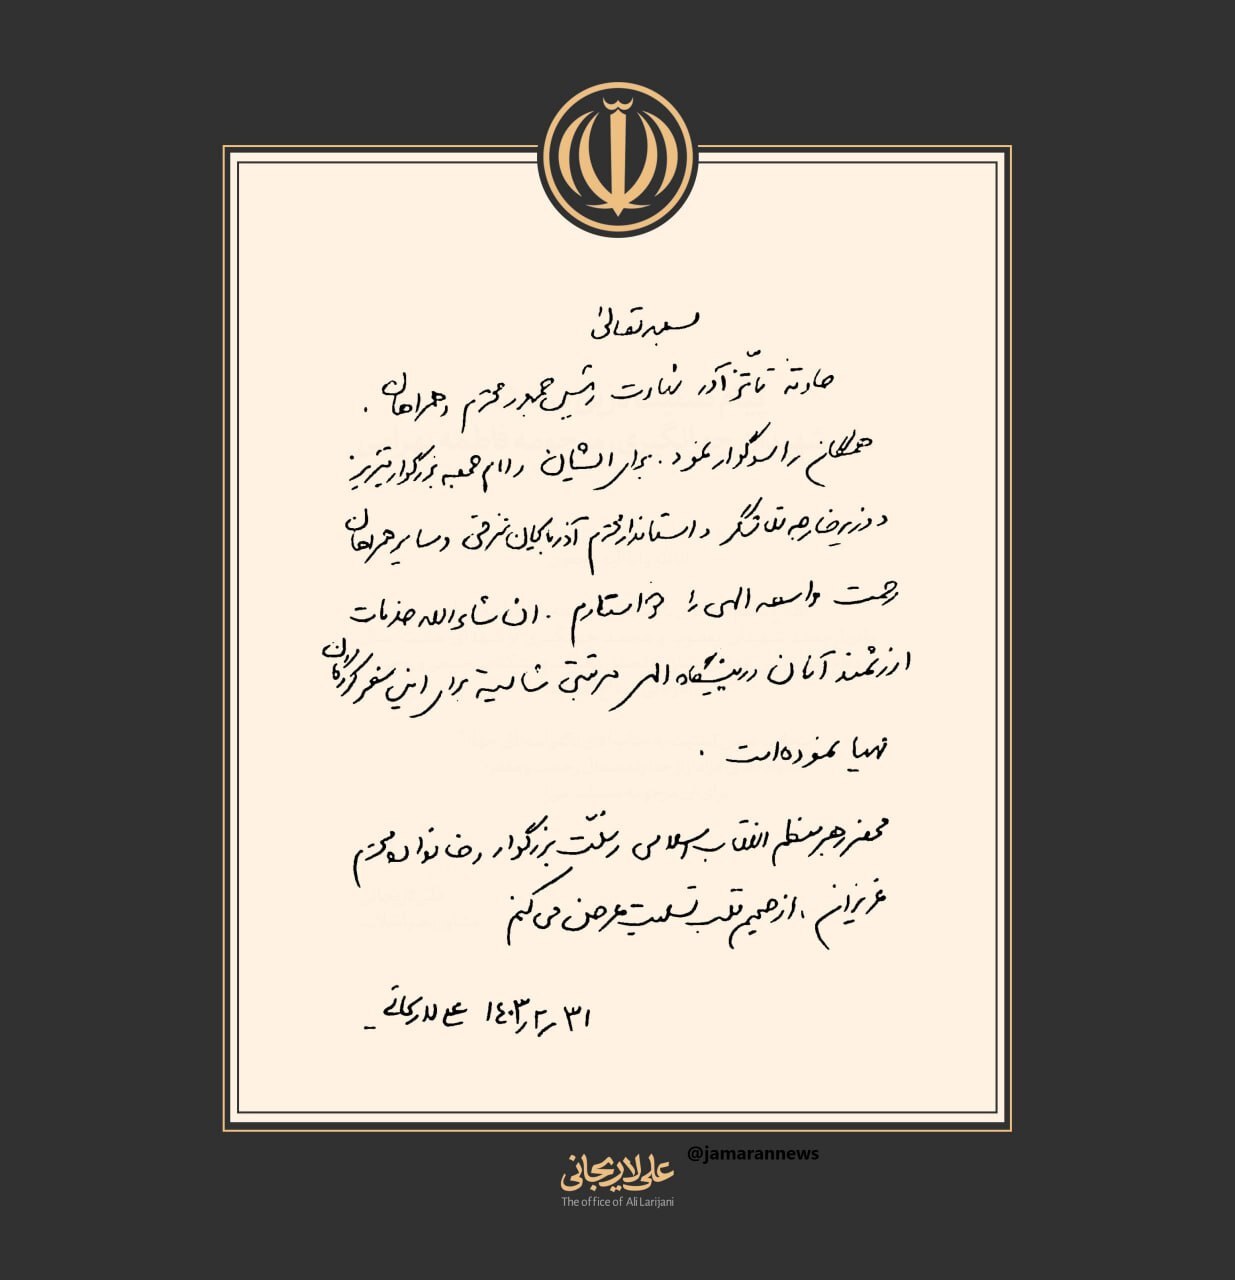 بسمه تعالی
حادثهٔ تأثّر آور شهادت رئیس جمهور محترم و همراهان،
همگان را سوگوار نمود. برای ایشان و امام جمعه بزرگوار تبریز
و وزیر خارجه تلاشگر و استاندار محترم آذربایجان شرقی و سایر همراهان
رحمت واسعه الهی را خواستارم. ان شاء الله خدمات
ارزشمند آنان در پیشگاه الهی مرتبتی شامیة برای این سفر کردگان
مهیا نموده است.
محضر رهبر معظم انقلاب اسلامی و ملّت بزرگوار و خانواده محترم
عزیزان، از صمیم قلب تسلیت عرض می کنم
علی لاریجانی ۱۴۰۳٫۲٫۳۱
@jamarannews
علی لاریجانی
The office of Ali Larijani